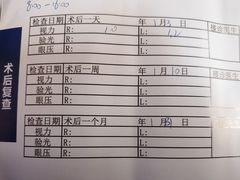 8:00-16:00
检查日期 术后一天 年 1 月 3 日 接诊医生
视力 R: 1.0 L: 1.2
验光 R: L:
眼压 R: L:
术后复查
检查日期 术后一周 年 1 月 10 日 接诊医生
视力 R: L:
验光 R: L:
眼压 R: L:
检查日期 术后一个月 年 1 月 日
视力 R: L:
验光 R: L:
眼压 R: L: